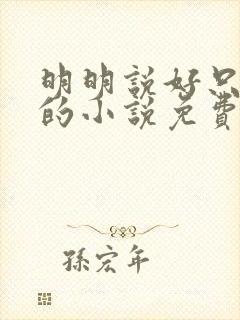 明明說好只
的小說免費
孫宏年